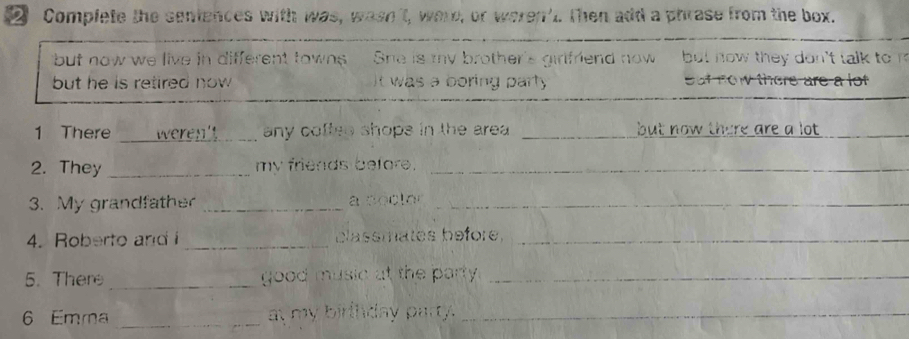 2 Complete the sentences with was, wasn't, were, or weren't. Then add a phrase from the box.
but now we live in different towns She is my brother's girlfriend now but now they don't talk to
but he is retired now It was a boring party but now there are a lot
1 There weren't any coffee shops in the area but now there are a lot
2. They my friends before,
3. My grandfather a doctor
4. Roberto and I classmates before,
5. There good music at the party.
6 Emma at my birthday party.